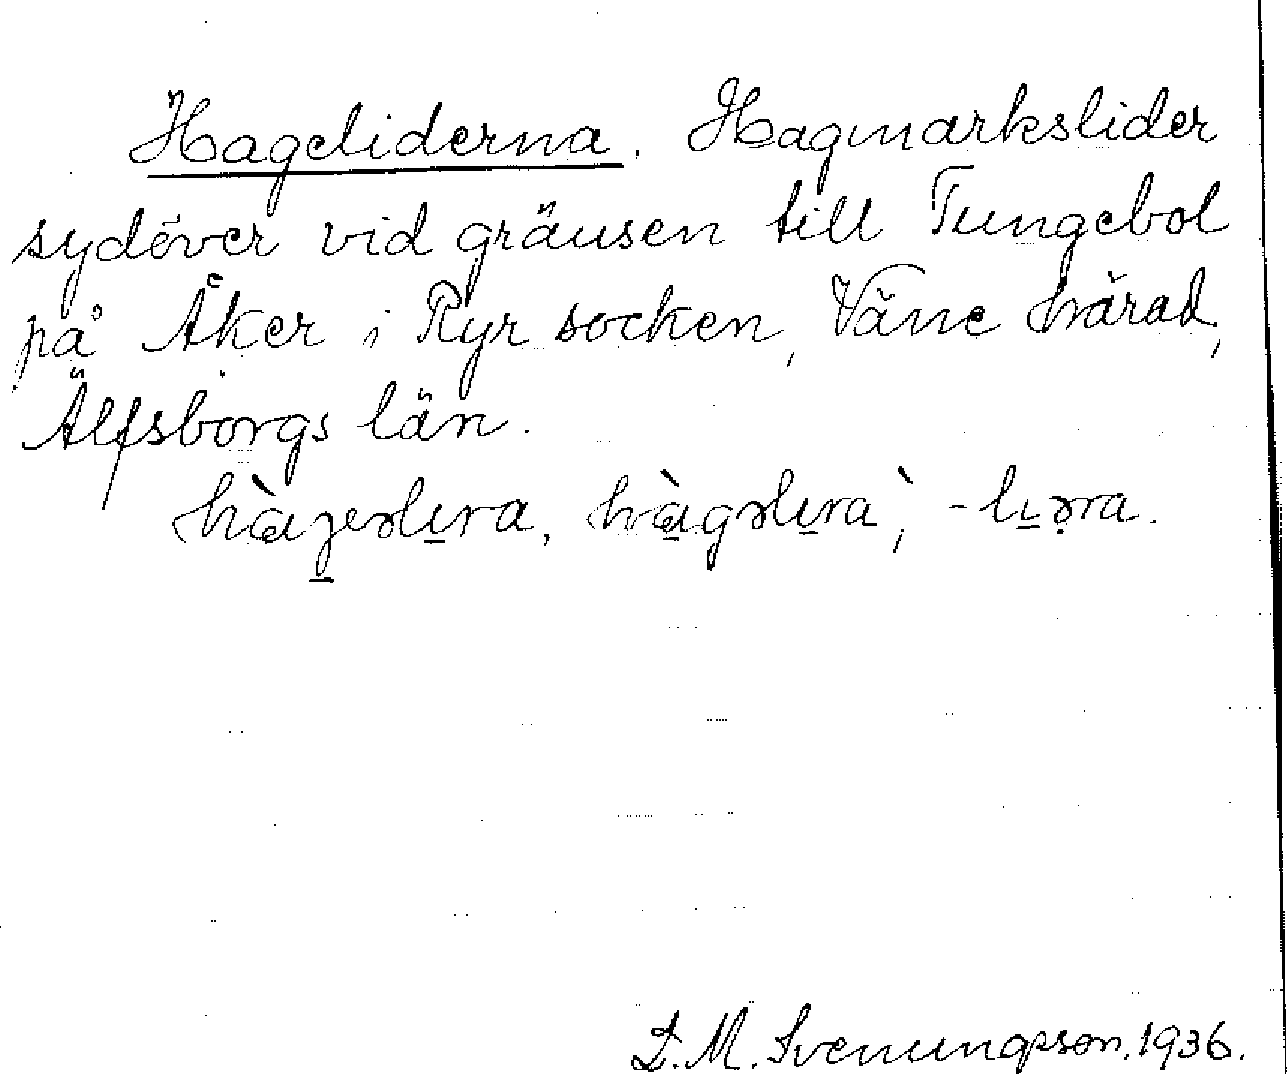 Hageliderna. Hagmarkslider
sydöver vid gränsen till Tungebol
på Åker i Ryr socken, Väne härad,
Älfsborgs län.
-lɩ̱ə̣ra.
D. M. Svenungsson. 1936.